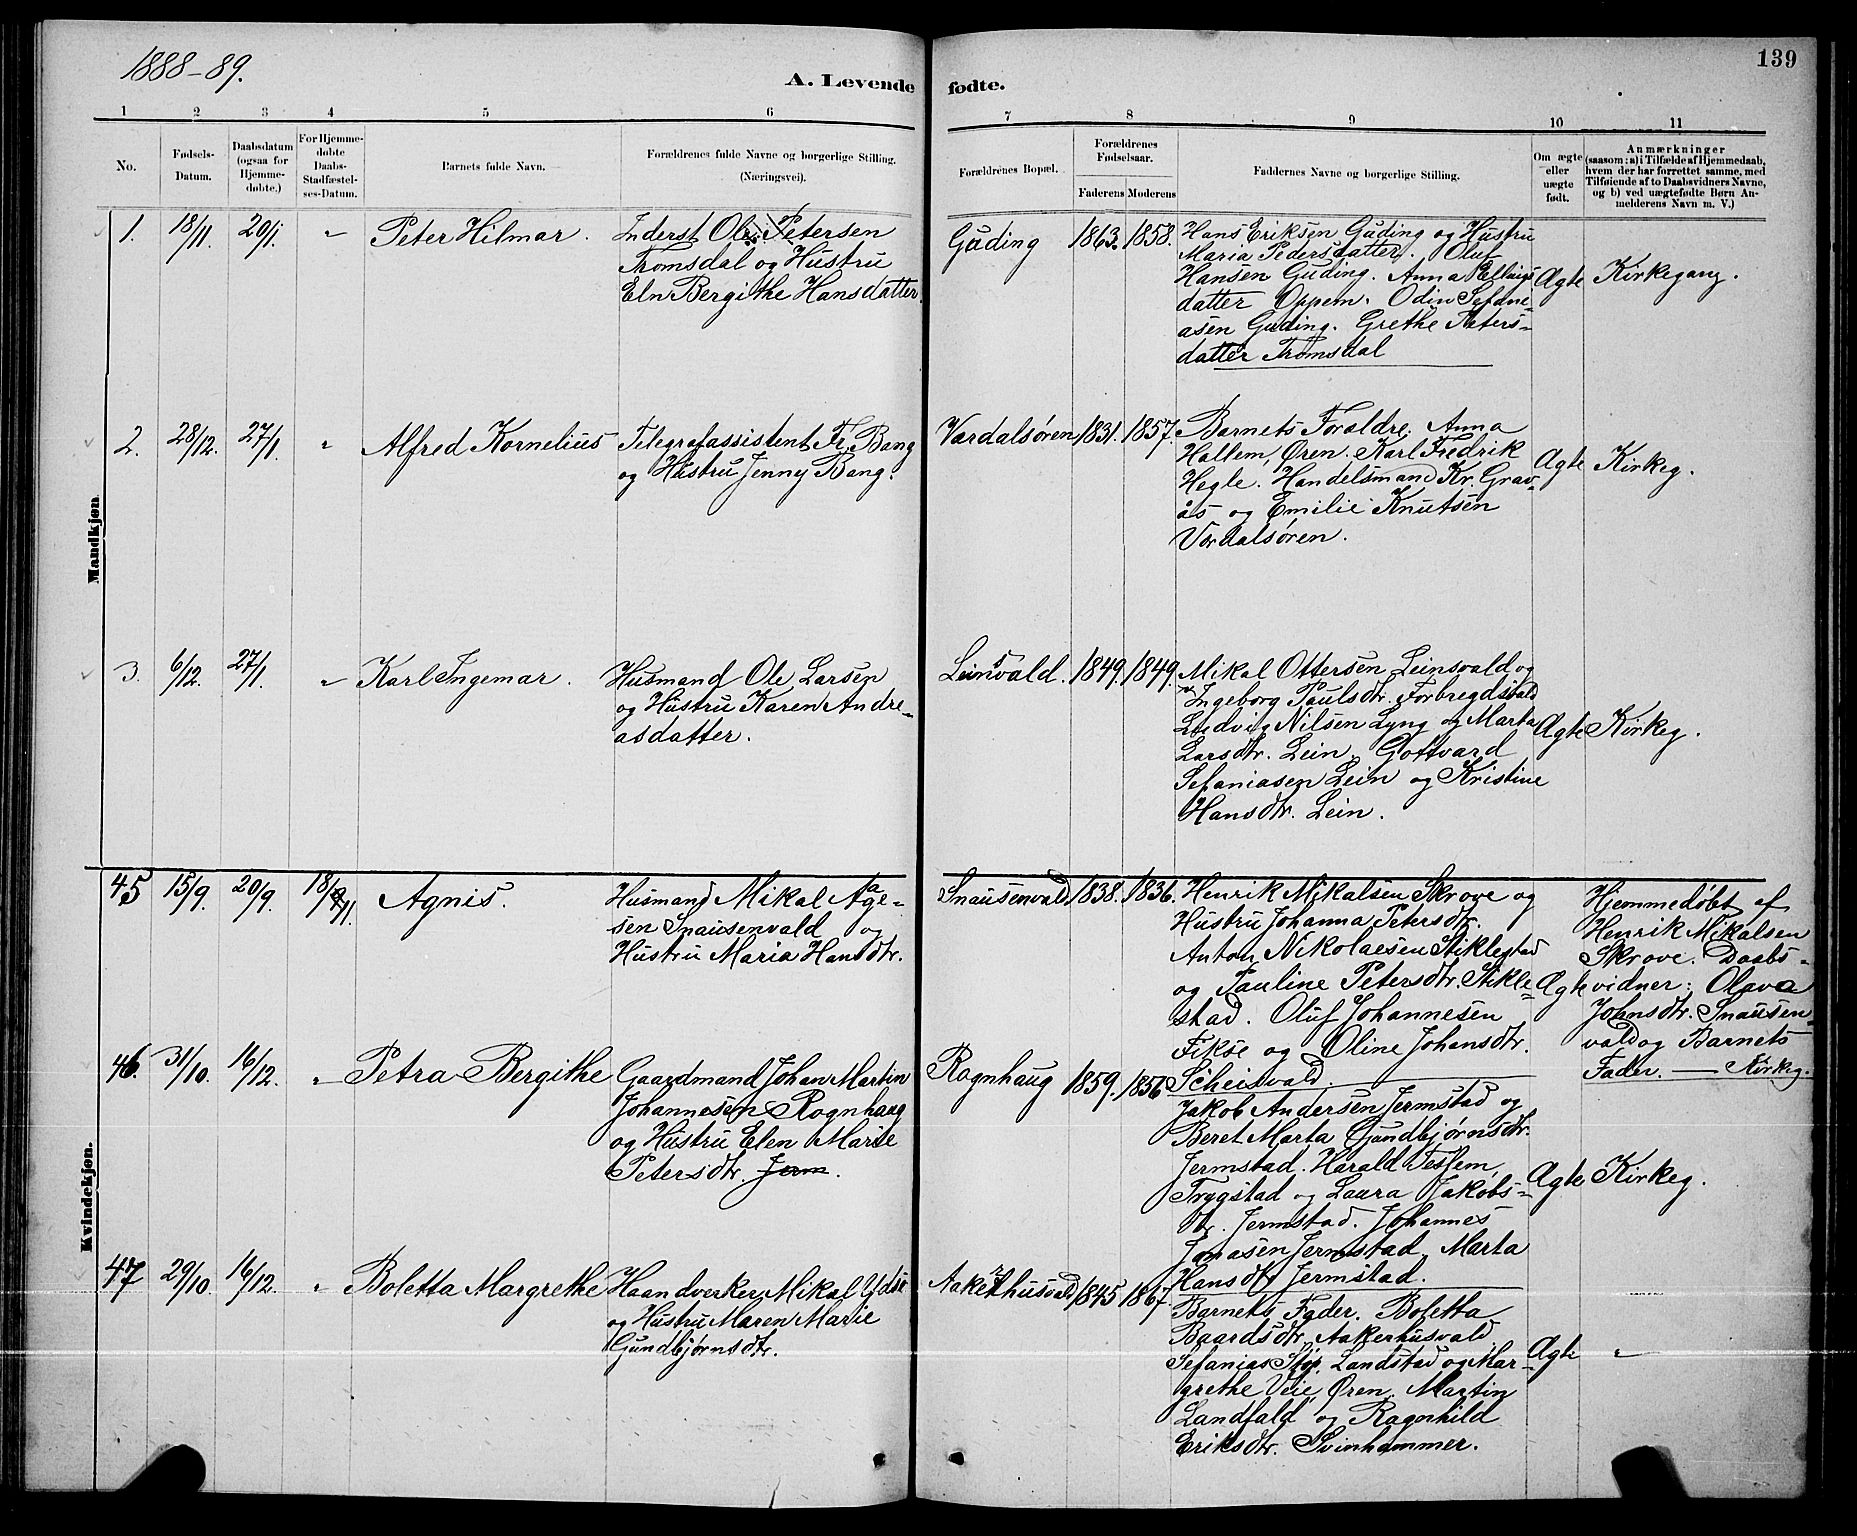 1888-89.
139
A. Levende fødte.
1 2 3 4 5 6 7 8 9 10 11
No.
Fødsels-
Datum.
Daabsdatum
(ogsaa for
Hjemme-
døbte.)
For Hjemme-
døbte
Daabs-
Stadfæstel-
ses-Datum.
Barnets fulde Navn.
Forældrenes fulde Navne og borgerlige Stilling.
(Næringsvei).
Forældrenes Bopæl.
Forældrenes
Fødselsaar.
Faderens Moderens
Faddernes Navne og borgerlige Stilling.
Om ægte
eller
uægte
født.
Anmærkninger
(saasom: a) i Tilfælde af Hjemmedaab,
hvem der har forrettet samme, med
Tilføiende af to Daabsvidners Navne,
og b) ved uægtefødte Børn An-
melderens Navn m. V.)
Mandkjøn
1. 18/11. 20/1. " Peter Hilmar.
Inderst Ole Petersen
Tromsdal og Hustru
Eln Bergithe Hansdatter.
Guding 1863. 1858.
Hans Eriksen Guding og Hustru
Maria Pedersdatter. Oluf
Hansen Guding. Anna Ellings
datter Oppem. Odin Sefani-
asen Guding. Grethe Peters-
datter Tromsdal
Ægte Kirkegang.
2. 28/12. 27/1. " Alfred Kornelius
Telegrafassistent Fr. Bang
og Hustru Jenny Bang.
Værdalsøren 1831. 1857.
Barnets Forældre. Anna
Hallem, Øren. Karl Fredrik
Hegle. Handelsmand Kr. Grav-
ås og Emilie Knutsen
Værdalsøren.
Ægte Kirkeg.
3. 6/12. 27/1. " Karl Ingemar.
Husmand Ole Larsen
og Hustru Karen Andre-
asdatter.
Leinsvald. 1849. 1849.
Mikal Ottersen Leinsvald og
Ingeborg Paulsdtr. Forbregdsvald
Ludvig Nilsen Lyng og Marta
Larsdtr. Lein. Gottvard
Sefaniasen Lein og Kristine
Hansdtr. Lein.
Ægte Kirkeg.
Kvindekjøn.
45 15/9. 20/9. 18/11. Agnis.
Husmand Mikal Aage-
sen Snausenvald og
Hustru Maria Hansdtr.
Snausenvald 1838. 1836.
Henrik Mikalsen Skrove og
Hustru Johanna Petersdtr.
Anton Nikolaesen Stiklestad
og Pauline Petersdtr. Stikle-
stad. Oluf Johannesen
Fikse og Oline Johansdtr.
Scheisvald.
Ægte
Hjemmedøbt af
Henrik Mikalsen
Skrove. Daabs-
vidner: Olava
Johnsdtr. Snausen-
vald og Barnets
Fader. — Kirkeg.
46. 31/10. 16/12. " Petra Bergithe
Gaardmand Johan Martin
Johannesen Rognhaug
og Hustru Elen Marie
Petersdtr. Jerm.
Rognhaug 1859. 1856
Jakob Andersen Jermstad og
Beret Marta Gundbjørnsdtr.
Jermstad. Harald Tessem,
Trygstad og Laura Jakobs-
dtr. Jermstad. Johannes
Jonasen Jermstad. Marta
Hansdtr. Jermstad.
Ægte Kirkeg.
47 29/10. 16/12. " Boletta Margrethe
Haandverker Mikal Ydse
og Hustru Maren Marie
Gundbjørnsdtr.
Aakerhusvald 1845 1867.
Barnets Fader. Boletta
Baardsdtr. Aakerhusvald
Sefanias Støp, Landstad og Mar-
grethe Veie, Øren. Martin
Landfald og Ragnhild
Eriksdtr. Svinhammer.
Ægte "